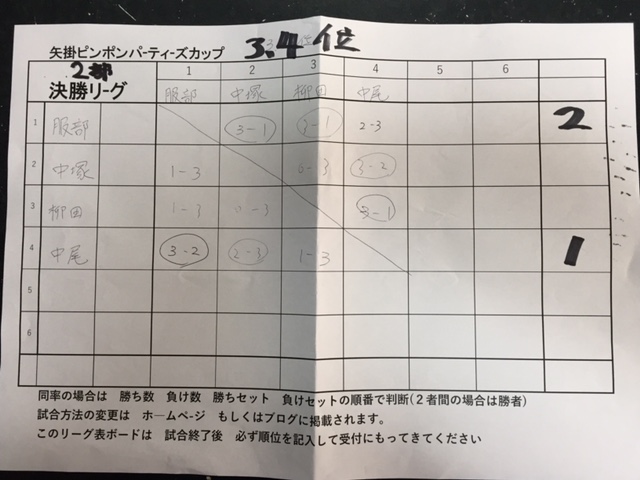 矢掛ピンポンパーティーズカップ 3.4位
2部
決勝リーグ 1 2 3 4 5 6
服部 中塚 柳田 中尾
1 服部 3-1 3-1 2-3 2
2 中塚 1-3 3-2
3 柳田 1-3 3-1
4 中尾 3-2 2-3 1-3 1
5
6
同率の場合は 勝ち数 負け数 勝ちセット 負けセットの順番で判断(2者間の場合は勝者)
試合方法の変更は ホームページ もしくはブログに掲載されます。
このリーグ表ボードは 試合終了後 必ず順位を記入して受付にもってきてください